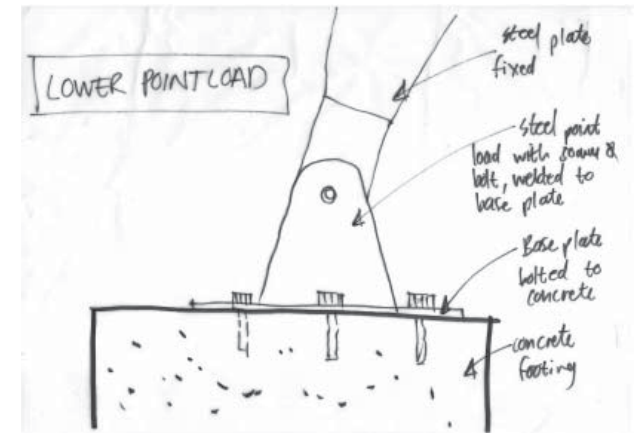 LOWER POINTLOAD
steel plate
fixed
steel point
load with 30mm Ø
bolt, welded to
base plate
Base plate
bolted to
concrete
concrete
footing